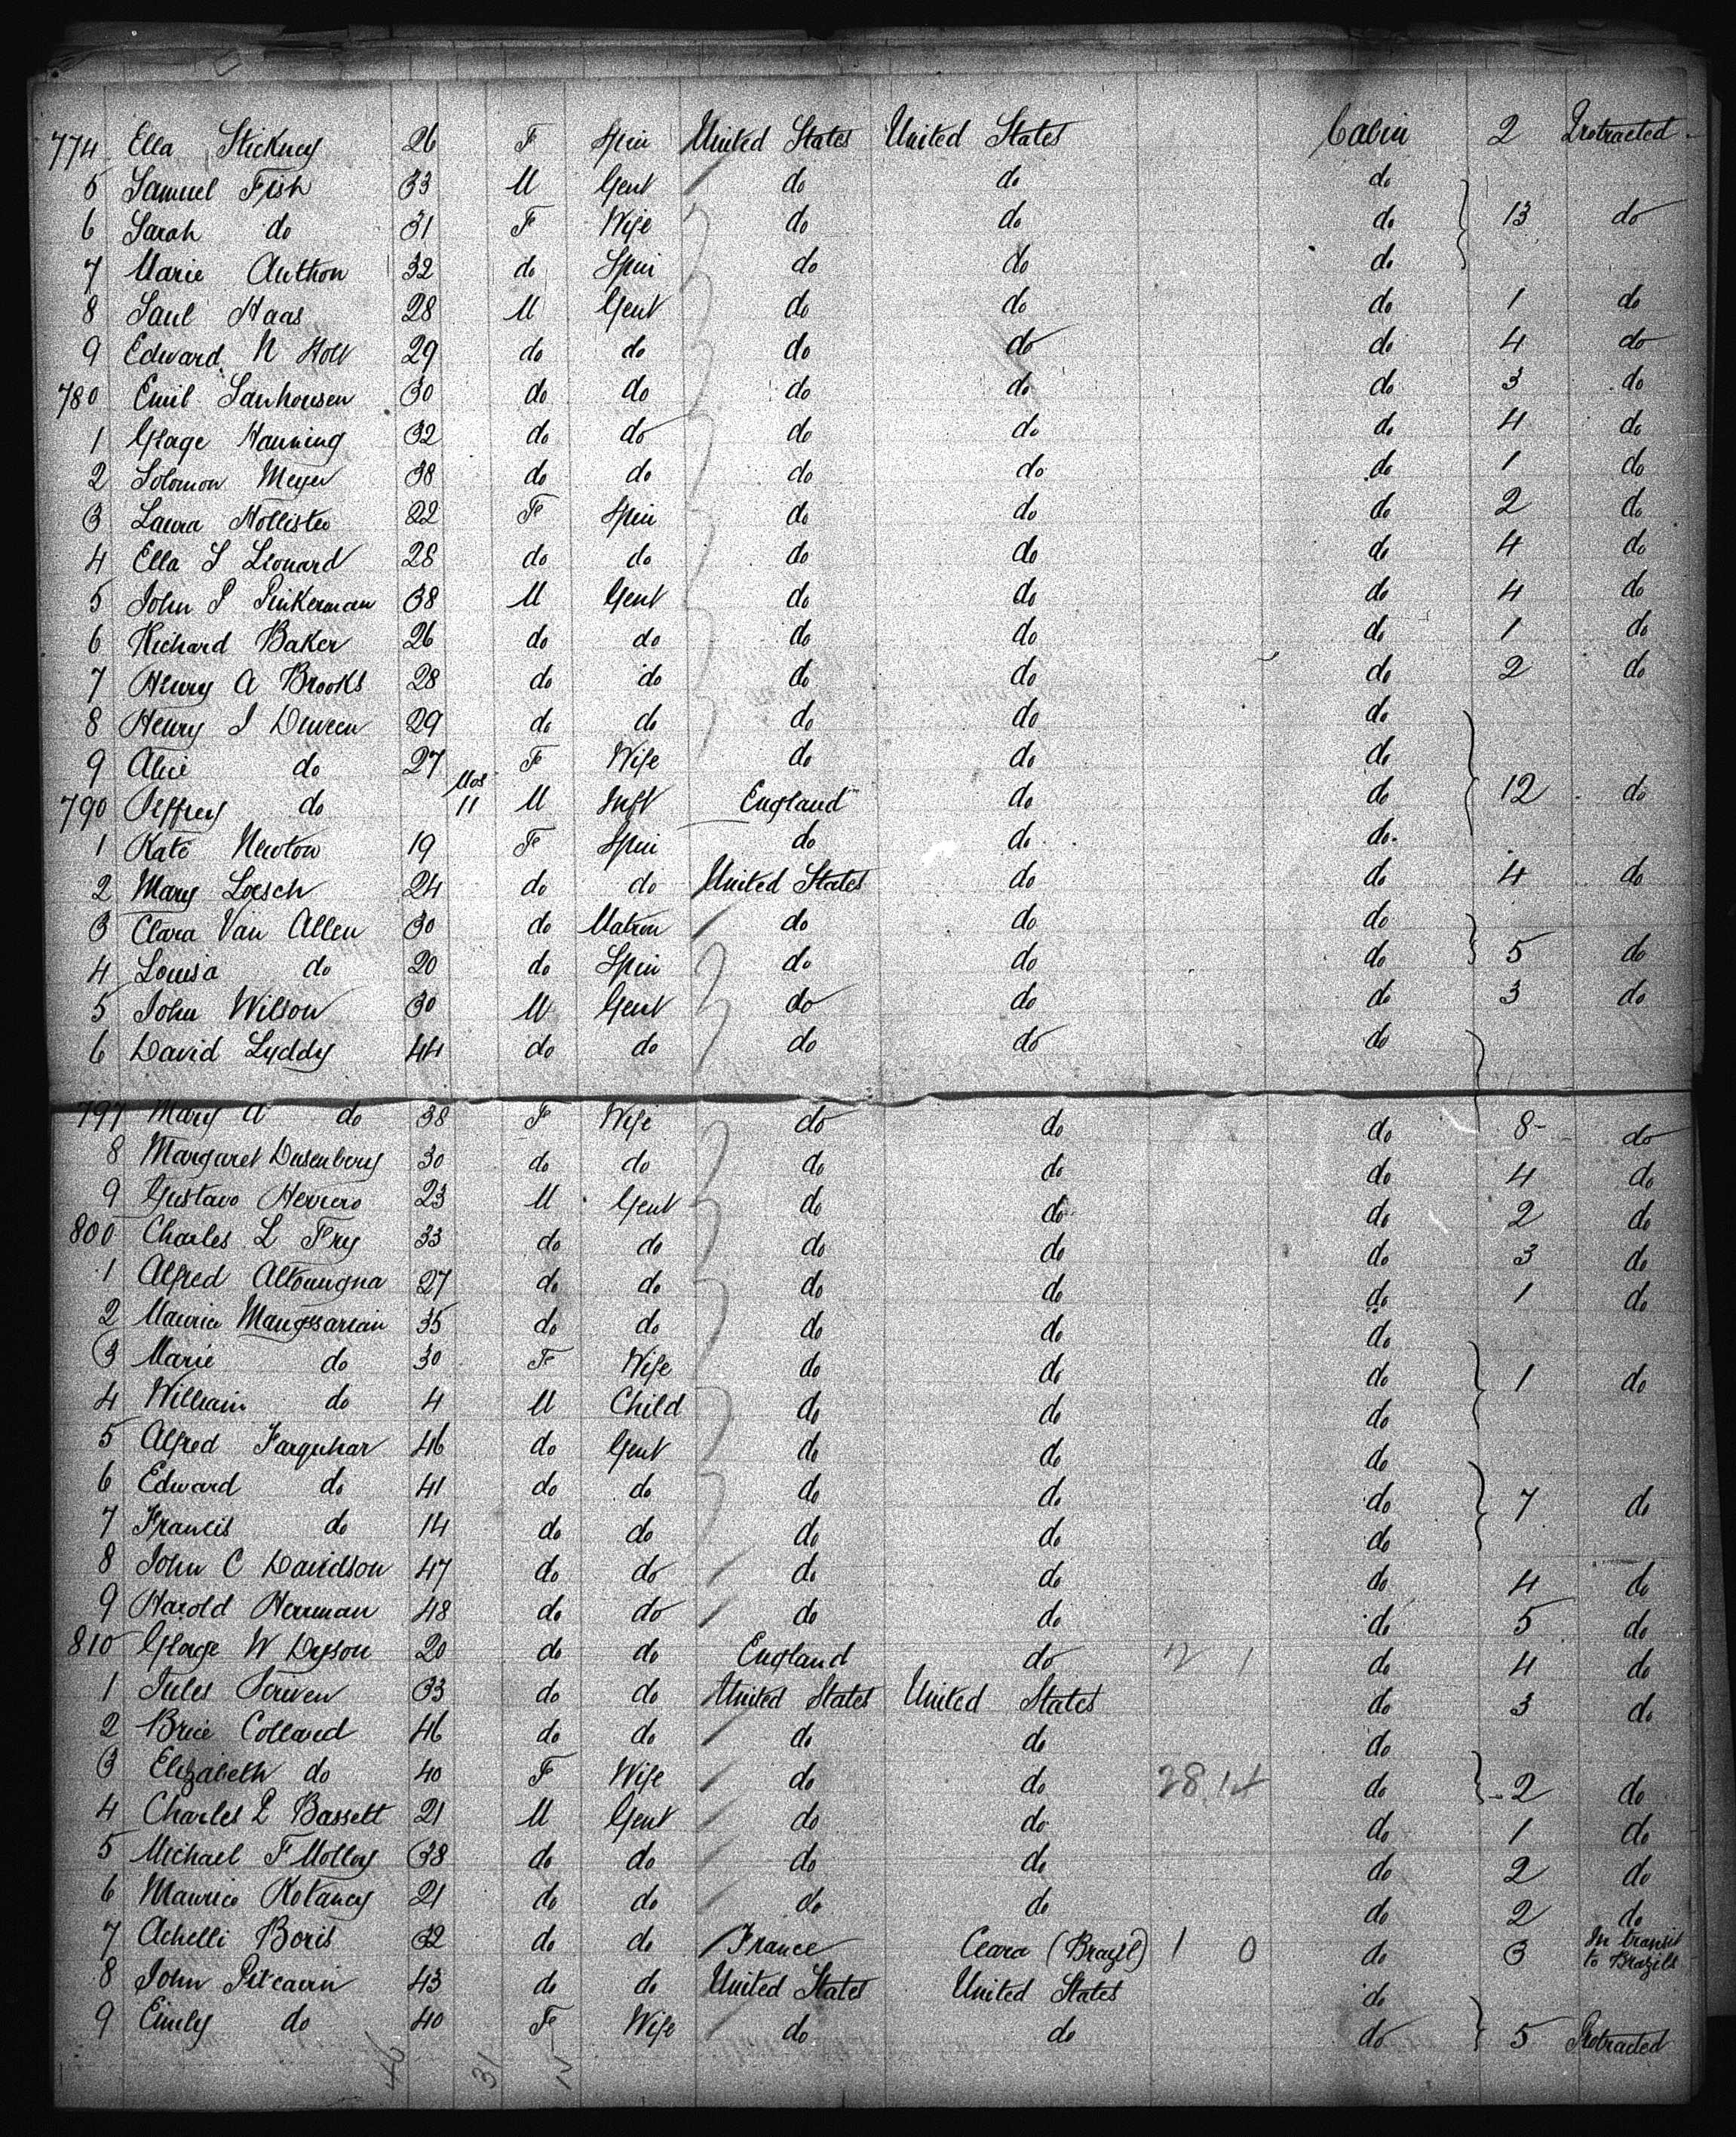 774 Ella Stickney 26 F Spin United States United States Cabin 2 Protracted
5 Samuel Fish 33 M Gent do do do
6 Sarah do 31 F Wife do do do 13 do
7 Marie Anthon 32 do Spin do do do
8 Saul Haas 28 M Gent do do do 1 do
9 Edward N Holt 29 do do do do do 4 do
780 Emil Sanhousen 30 do do do do do 3 do
1 George Hanning 32 do do do do do 4 do
2 Solomon Meyer 38 do do do do do 1 do
3 Laura Hollister 22 F Spin do do do 2 do
4 Ella S Leonard 28 do do do do do 4 do
5 John P Pinkerman 38 M Gent do do do 4 do
6 Richard Baker 26 do do do do do 1 do
7 Henry A Brooks 28 do do do do do 2 do
8 Henry J Duveen 29 do do do do do
9 Alice do 27 F Wife do do do
790 Jeffrey do Mos 11 M Inft England do do 12 do
1 Kate Newton 19 F Spin do do do
2 Mary Loesch 24 do do United States do do 4 do
3 Clara Van Allen 30 do Matron do do do
4 Louisa do 20 do Spin do do do 5 do
5 John Wilson 30 M Gent do do do 3 do
6 David Lyddy 44 do do do do do
797 Mary A do 38 F Wife do do do 8 do
8 Margaret Dusenbery 30 do do do do do 4 do
9 Gustavo Herrero 23 M Gent do do do 2 do
800 Charles L Fry 33 do do do do do 3 do
1 Alfred 27 do do do do do 1 do
2 Maurice 35 do do do do do
3 Marie do 30 F Wife do do do 1 do
4 William do 4 M Child do do do
5 Alfred Farquhar 46 do Gent do do do
6 Edward do 41 do do do do do 7 do
7 Francis do 14 do do do do do
8 John C Davidson 47 do do do do do 4 do
9 Harold Herrman 48 do do do do do 5 do
810 George W Dyson 20 do do England do 2 1 do 4 do
1 Jules 33 do do United States United States do 3 do
2 Brice Collard 46 do do do do do
3 Elizabeth do 40 F Wife do do 28 14 do 2 do
4 Charles P Bassett 21 M Gent do do do 1 do
5 Michael F Molloy 38 do do do do do 2 do
6 Maurice Kotancy 21 do do do do do 2 do
7 Achelli Boris 32 do do France Ceara (Brazil) 1 0 do 3 In transit to Brazils
8 John Pitcairn 43 do do United States United States do
9 Emily do 40 F Wife do do do 5 Protracted
46 31 15